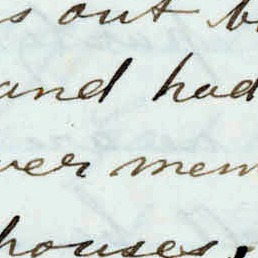 s out b
and had
ver mem
houses.